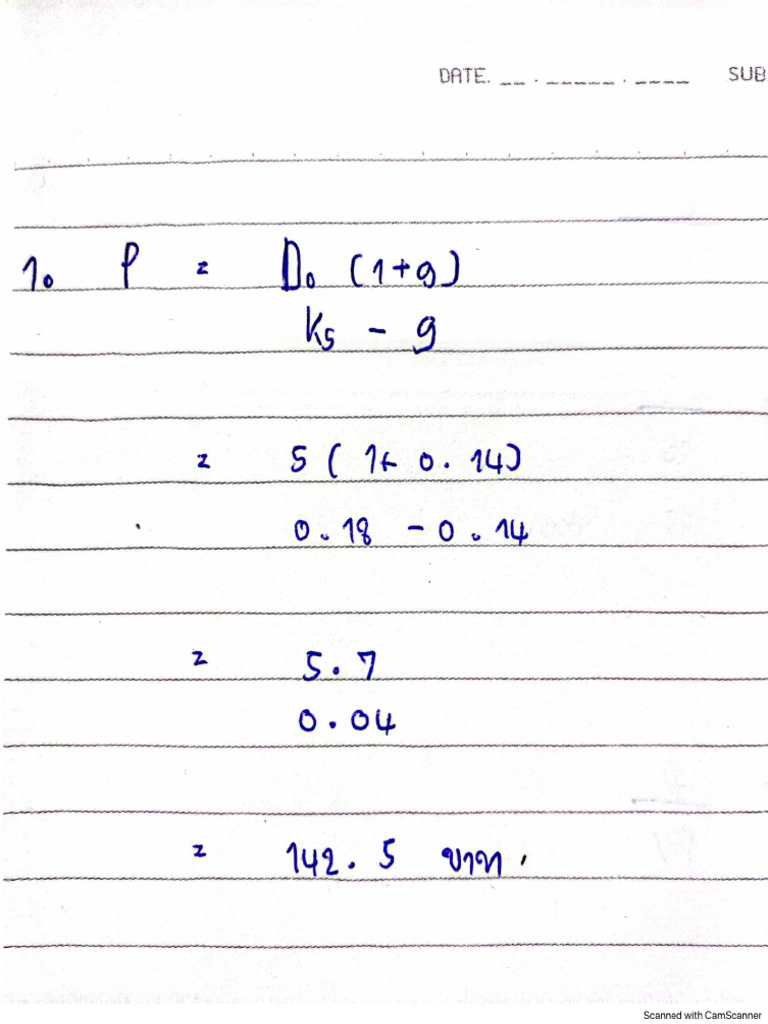 DATE. __ . _____ . ____ SUB
1. P = D₀ (1+g)
Ks - g
= 5 ( 1+ 0.14)
0.18 - 0.14
= 5.7
0.04
= 142.5 บาท
Scanned with CamScanner